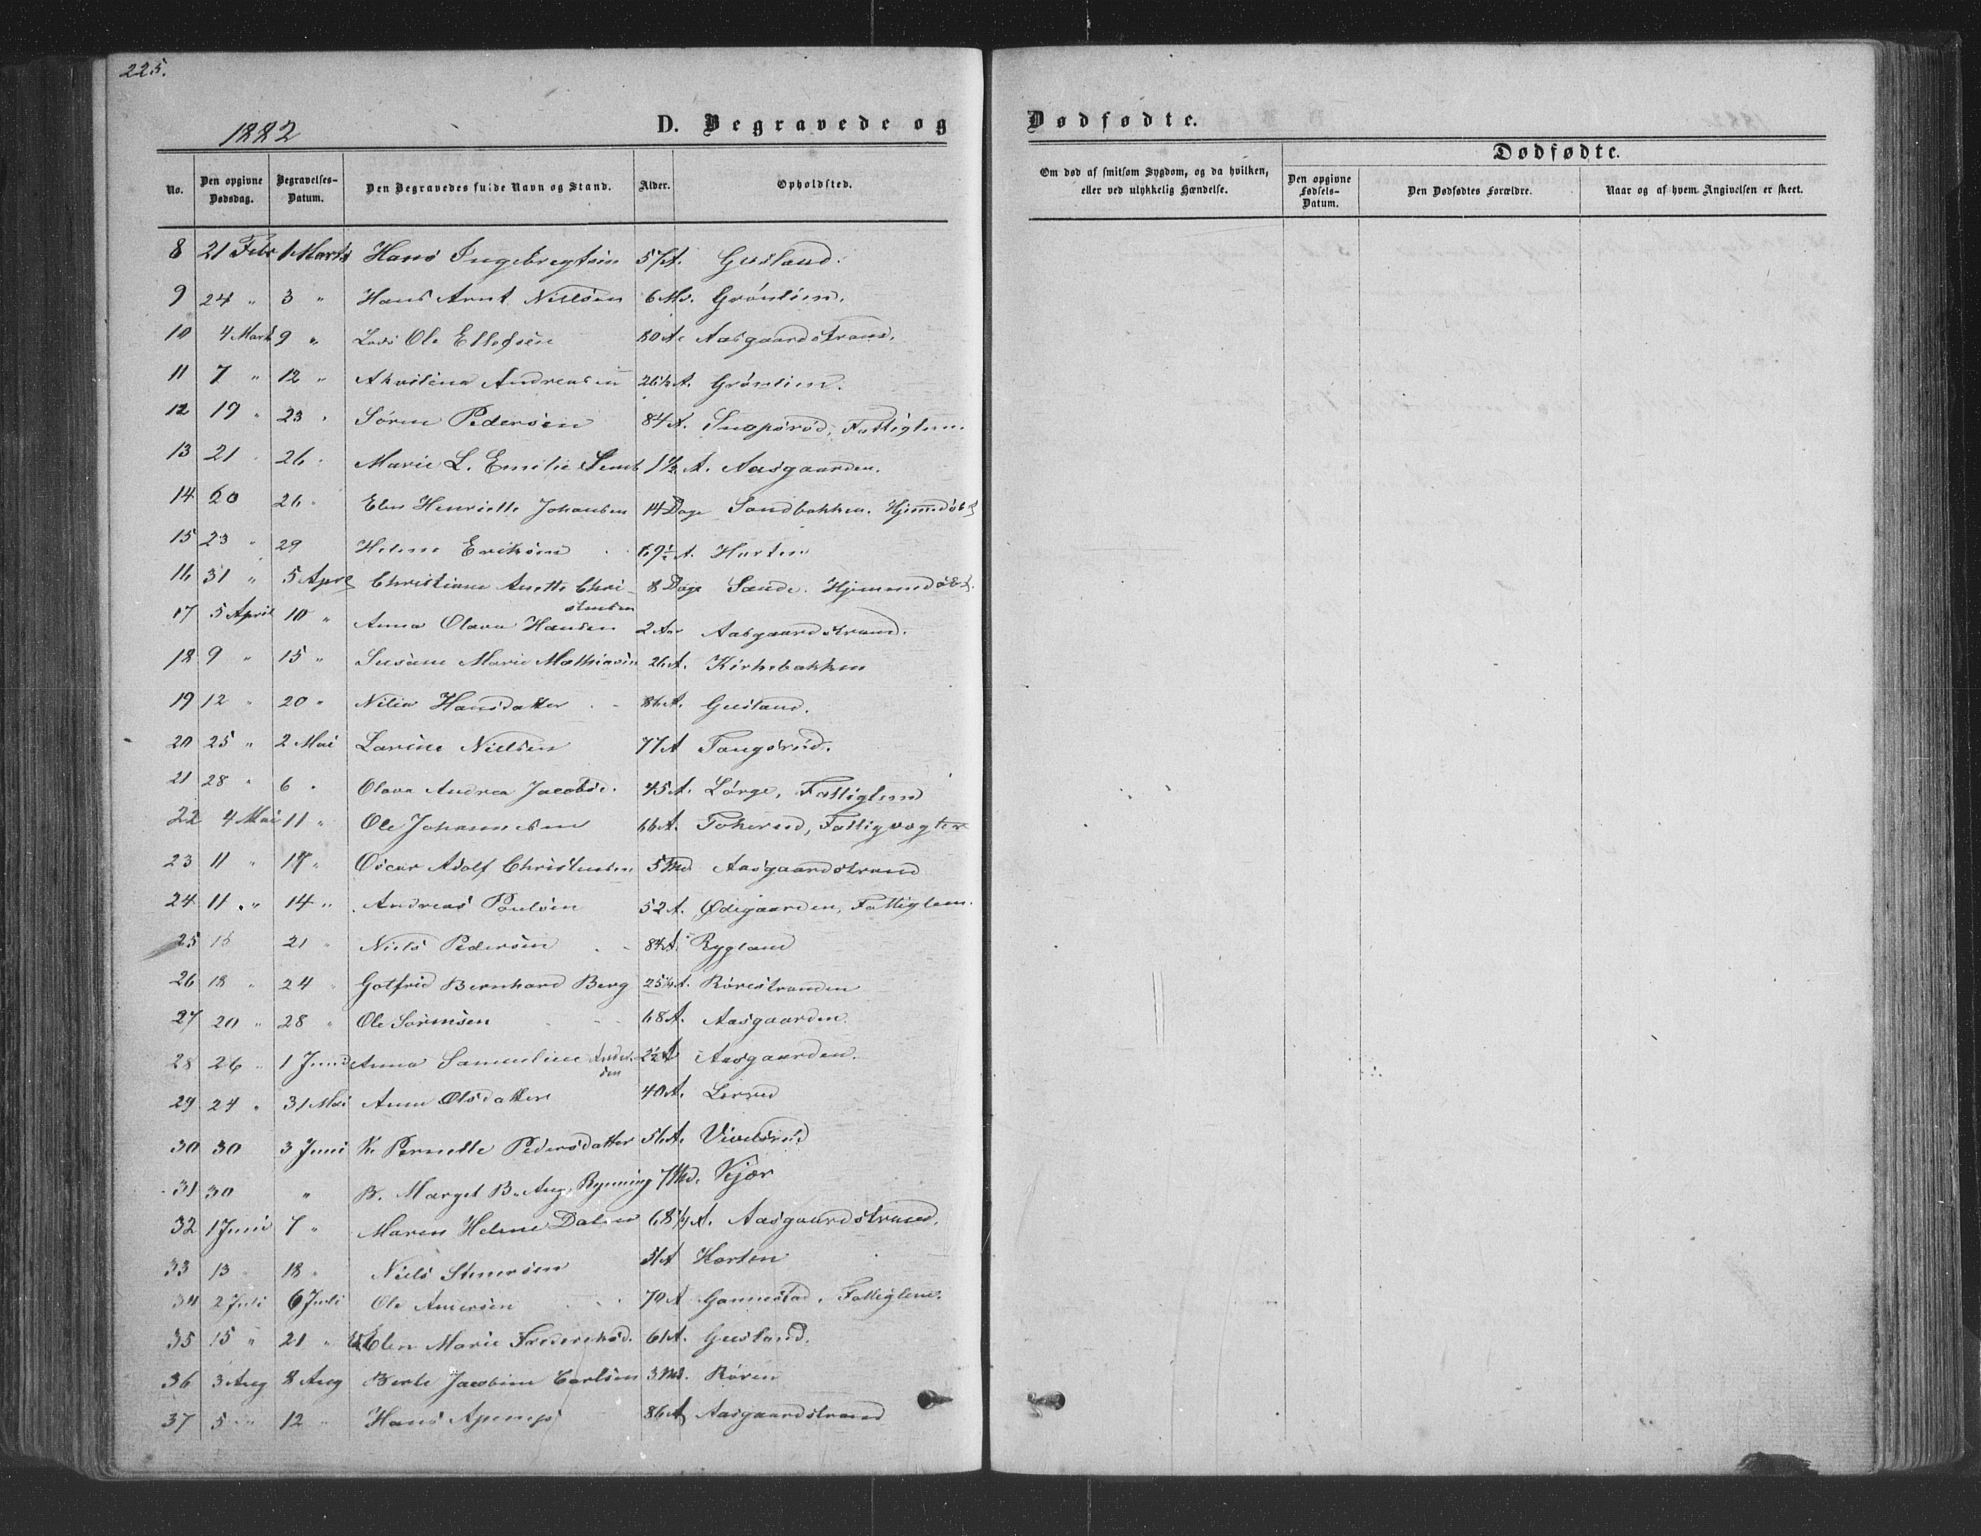 225.
1882
D. Begravede og
Dødfødte.
No. Den opgivne Dødsdag. Begravelses-Datum. Den Begravedes fulde Navn og Stand. Alder. Opholdsted.
Om død af smitsom Sygdom, og da hvilken, eller ved ulykkelig Hændelse.
Dødfødte.
Den opgivne Fødsels-Datum. Den Dødfødtes Forældre. Naar og af hvem Angivelsen er skeet.
8 21 Febr 1 Marts Hans Ingebregtsen Gusland.
9 24 " 3 " Hans Arnt Nielsen 6 Md. Grønlien.
10 4 Marts 9 " Lods Ole Ellefsen 80 A. Aasgaardstrand.
11 7 " 12 " Andreasen 26½ A. Grønlien.
12 19 " 23 " Søren Pedersen 84 A. Snapsrød, Fattiglem.
13 21 " 26 " Marie L. Emilie 1½ A. Aasgaarden.
14 20 26 " Henriette Johansen 14 Dage Sandbakken. Hjemmedøbt
15 23 " 29 Helene Eriksen 69½ A. Horten
16 31 " 5 April Christiane Anette Chri-
stensen 8 Dage Sande. Hjemmedøbt.
17 5 April 10 " Anna Olava Hansen 2 Aar Aasgaardstrand.
18 9 " 15 " Susane Marie Mathiasen 26 A. Kirkebakken
19 12 " 20 " Hansdatter 86 A. Gusland.
20 25 " 2 Mai Larine Nielsen 77 A Fangsrud.
21 28 " 6 " Olava Andrea Jacobsd. 45 A. Lørge, Fattiglem
22 4 Mai 11 " Ole Johannesen 66 A. Tokerud, Fattigvogter
23 11 " 17 " Oscar Adolf Christensen 5 Md Aasgaardstrand
24 11 " 14 " Andreas Poulsen 52 A. Ødegaarden, Fattiglem.
25 21 " Niels Pedersen Rygland
26 18 " 24 " Gotfrid Bernhard Berg 25¼ A. Rørestranden
27 20 " 28 " Ole Sørensen 68 A. Aasgaarden.
28 26 " 1 Juni Anna Samueline Ander-
sen 2½ A Aasgaarden.
29 24 " 31 Mai Anne Olsdatter 40 A.
30 30 3 Juni K. Pernelle Pedersdatter 56 A. Vivelsrud
31 30 " B. Marget B. Aug. Rynning 7 Md. Kjær
32 1 Juni 7 " Maren Helene 68¼ A. Aasgaardstrand.
33 13 " 18 " Niels Stenersen 51 A Horten
34 2 Juli 6 Juli Ole Andersen 70 A Gannestad, Fattiglem.
35 15 " 21 " Elen Marie Frederiksd. 61 A. Gusland.
36 3 Aug 8 Aug Berte Jacobine Carlsen 3 Md. Røren
37 5 " 12 " Hans 86 A Aasgaardstrand